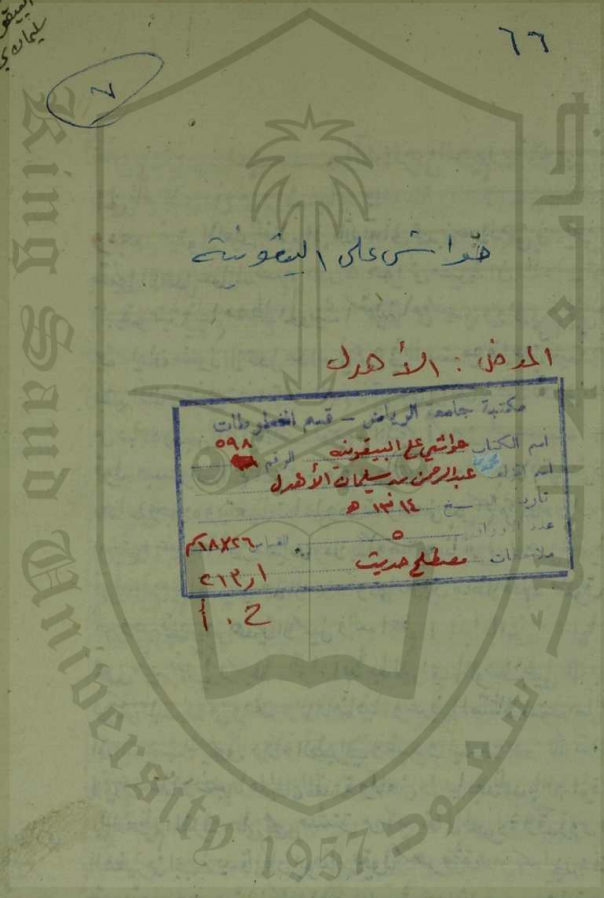 ٦٦
٧
حواشى على البيقونية
المؤلف : الأهدل
مكتبة جامعة الرياض - قسم المخطوطات
اسم الكتاب حواشي على البيقونيه الرقم ٥٩٨
اسم المؤلف عبدالرحمن بن سليمان الأهدل
تاريخ النسخ ١٣١٤ هـ
عدد الأوراق ٥ القياس ٢٦×١٨سم
ملاحظات مصطلح حديث
٢١٣٫١
ح . أ
King Saud University
1957
جامعة
سعود